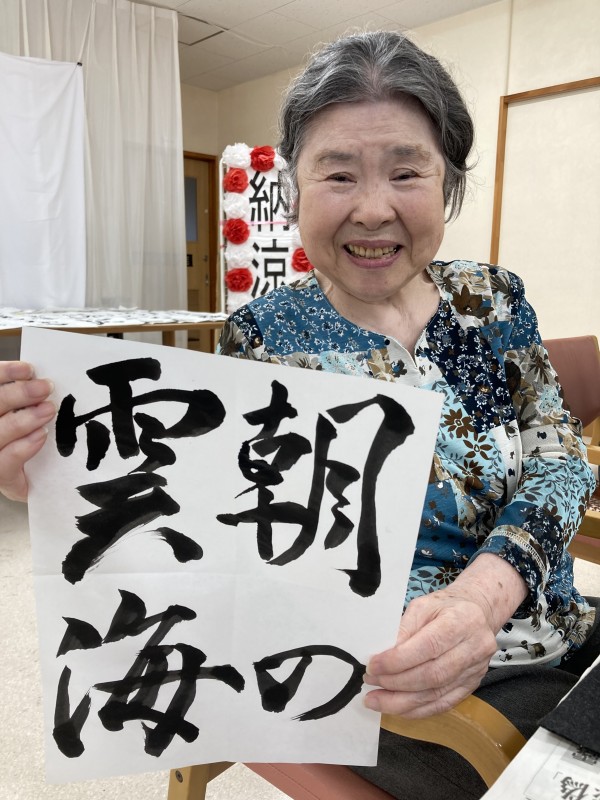 朝の
雲海
納涼